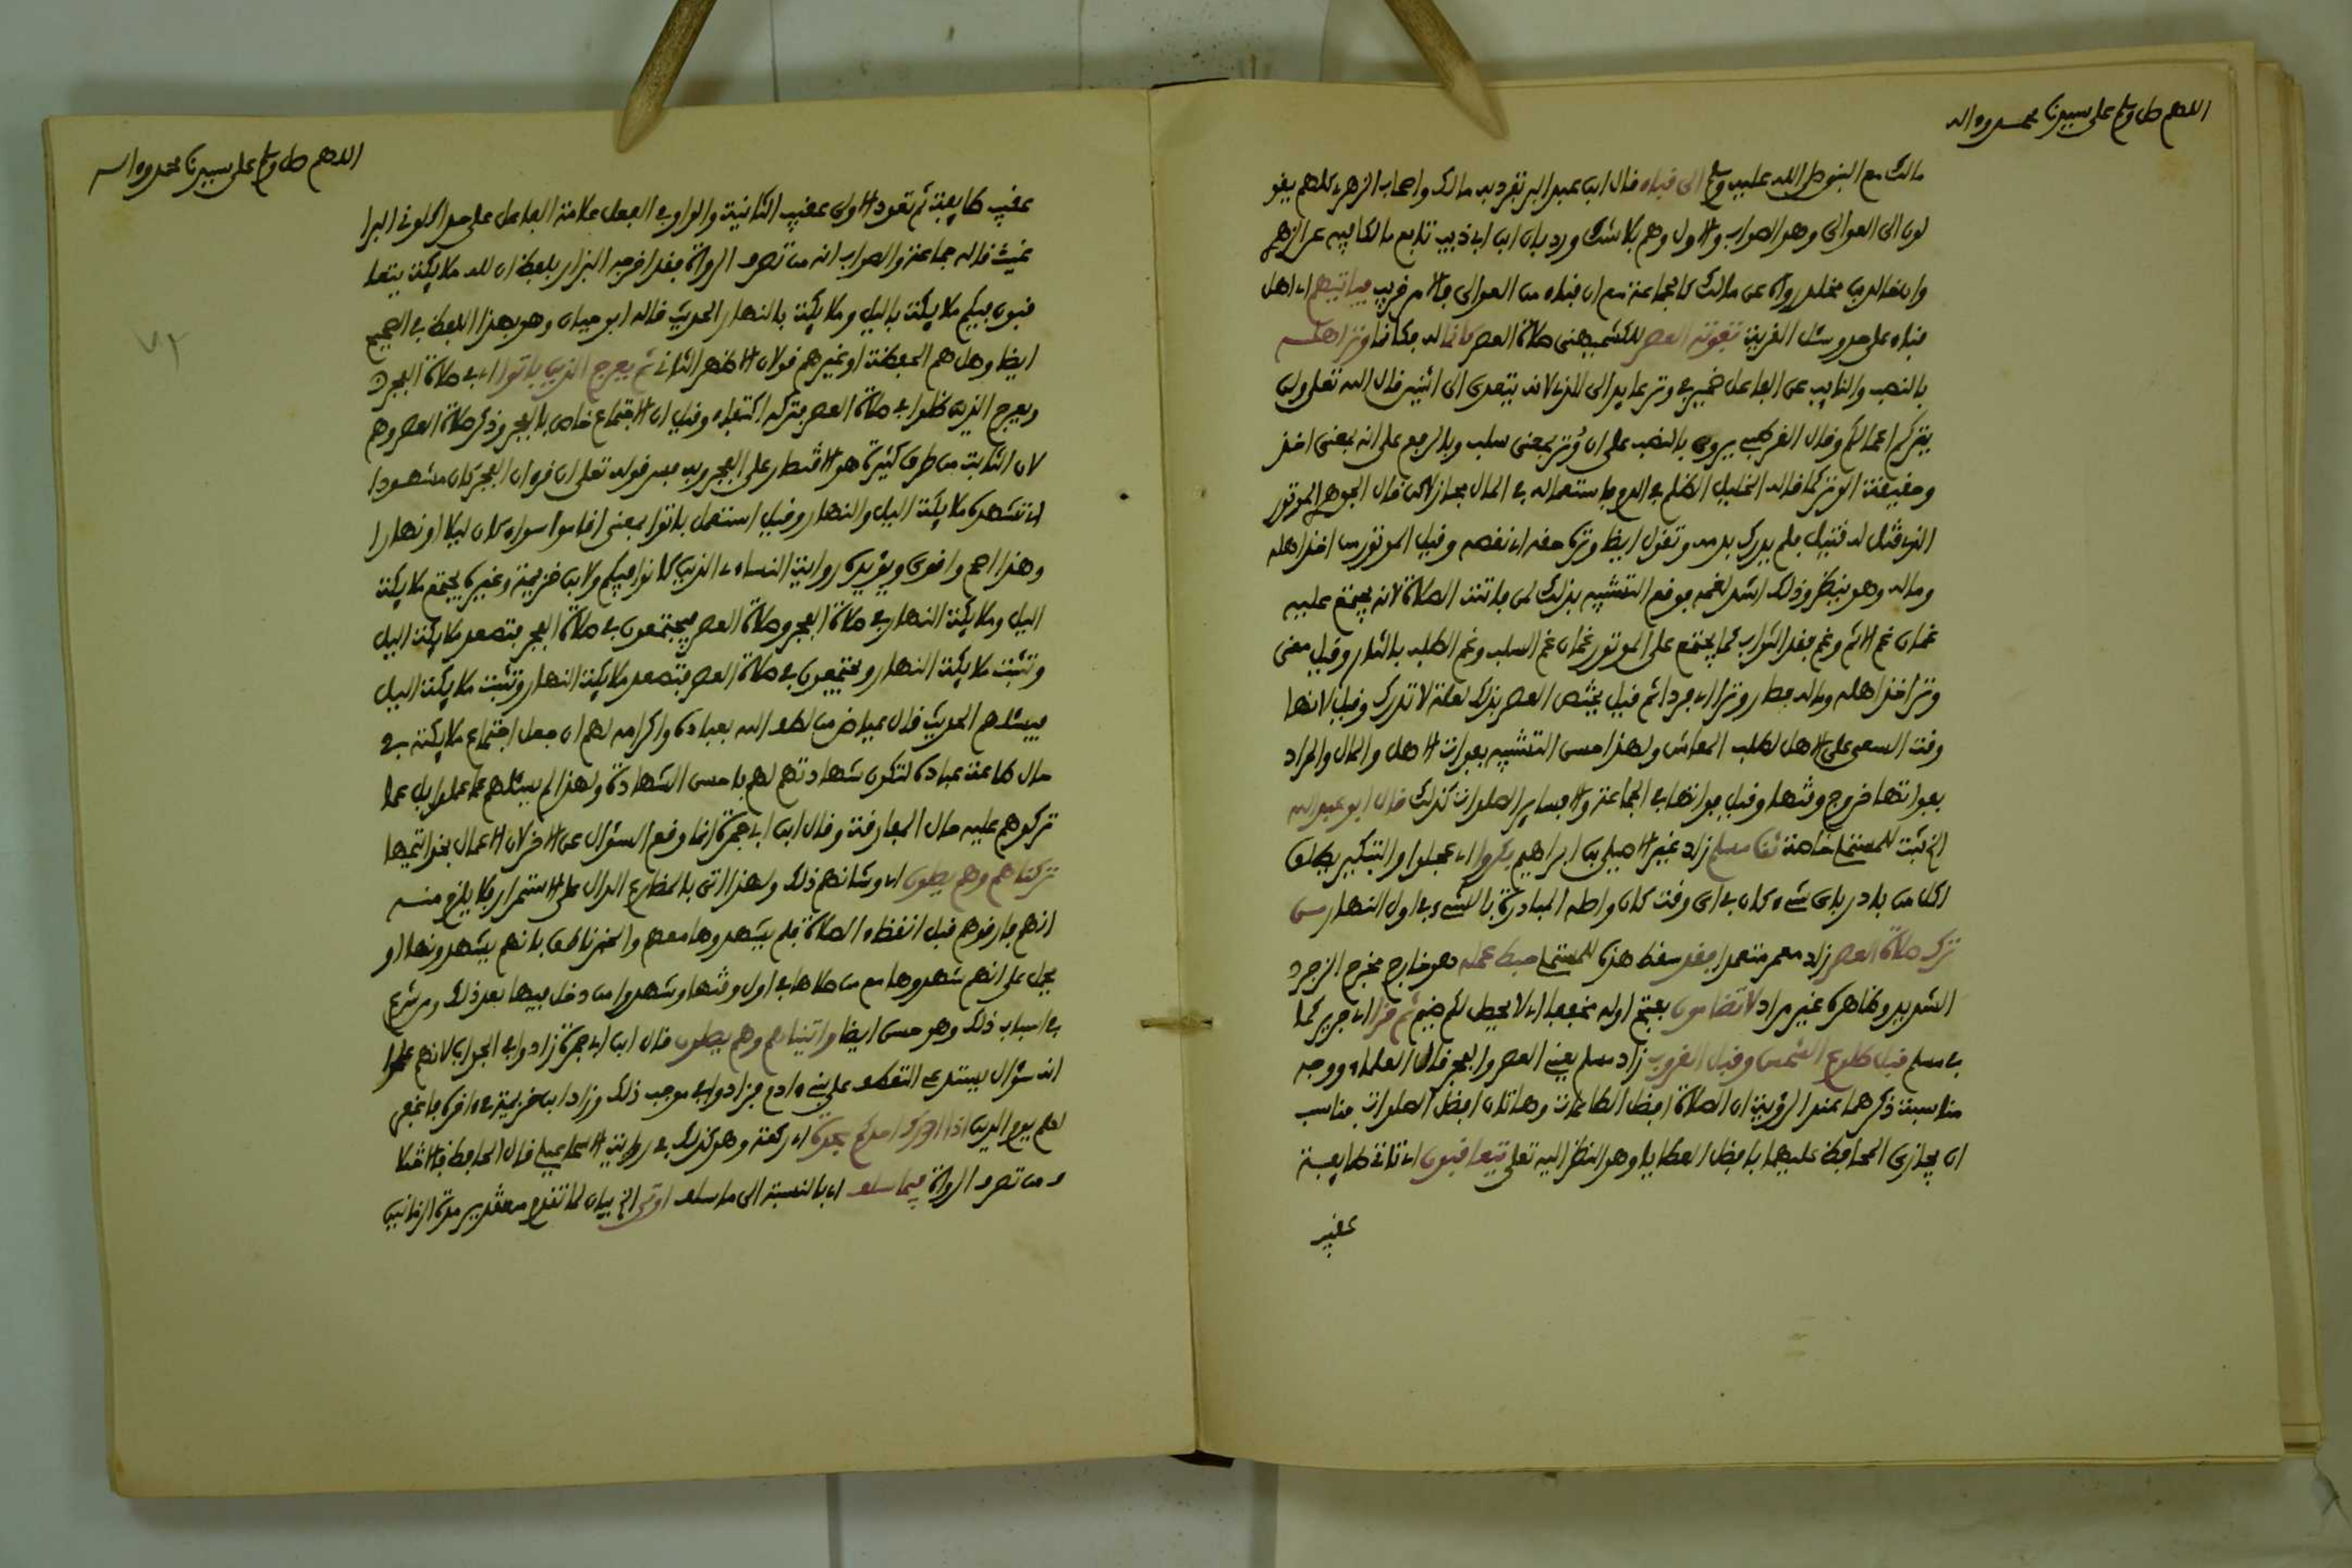 اللهم صل وسلم على سيدنا محمد وءاله
مالك مع النبي صلى الله عليه وسلم الى قباء قال ابن عبد البر تفرد به مالك واصحاب الزهري كلهم يقو
لون الى العوالي وهو الصواب والاول وهم بلا شك ورد بان ابن ابي ذيب تابع مالكا فيه عن الزهري
وان خالد بن مخلد رواه عن مالك كالجماعة مع ان قباء من العوالي فالامر قريب فياتيهم اي اهل
قباء على حد وسئل القرية تفوته العصر للكشميهني صلاة العصر كانما له فكانما وتر اهله
بالنصب والنايب عن الفاعل ضمير في وتر عايد الى الذي لانه يتعدى الى اثنين قال الله تعلى ولن
يتركم اعمالكم وقال القرطبي يروى بالنصب على ان وتر بمعنى سلب وبالرفع على انه بمعنى اخذ
وحقيقة الوتر كما قاله الخليل الظلم في الدم فاستعماله في المال مجاز لاكن قال الجوهري الموتور
الذي قتل له قتيل فلم يدرك بدمه وتقول ايضا وتره حقه اي نقصه وقيل الموتور من اخذ اهله
وماله وهو ينظر وذلك اشد لغمه فوقع التشبيه بذلك لمن فاتته الصلاة لانه يجتمع عليه
غمان غم الاثم وغم فقد الثواب كما يجتمع على الموتور غمان غم السلب وغم الطلب بالثار وقيل معنى
وتر اخذ اهله وماله فصار وترا اي فردا ثم قيل يختص العصر بذلك لعلة لا تدرك وقيل لانها
وقت السعي على الاهل لطلب المعاش ولهذا حسن التشبيه بفوات الاهل والمال والمراد
بفواتها خروج وقتها وقيل فواتها في الجماعة والا فساير الصلوات كذلك قال ابو عبد الله
الخ ثبت للمستملي خاصة ثنا مسلم زاد غير الاصيلي بن ابراهيم بكروا اي عجلوا والتبكير يطلق
لكل من بادر باي شيء كان في اي وقت كان واصله المبادرة بالشيء في اول النهار من
ترك صلاة العصر زاد معمر متعمدا فقد سقط هذا للمستملي حبط عمله هو خارج مخرج الزجر
الشديد وظاهره غير مراد لا تضامون بفتح اوله مخففا اي لا يحصل لكم ضيم ثم قرا اي جرير كما
في مسلم قبل طلوع الشمس وقبل الغروب زاد مسلم يعني العصر والفجر قال العلماء ووجه
مناسبة ذكرهما عند الرؤية ان الصلاة افضل الطاعات وهاتان افضل الصلوات فناسب
ان يجازى المحافظ عليهما بافضل العطايا وهو النظر اليه تعلى يتعاقبون اي تاتي طايفة
عقب
اللهم صل وسلم على سيدنا محمد وءاله
عقب طايفة ثم تعود الاولى عقب الثانية والواو في الفعل علامة الفاعل على حد اكلوني البرا
غيث قاله جماعة والصواب انه من تصرف الرواة فقد اخرجه البزار بلفظ ان لله ملايكة يتعا
قبون فيكم ملايكة بالليل وملايكة بالنهار الحديث قاله ابو حيان وهو بهذا اللفظ في الصحيح
ايضا وهل هم الحفظة او غيرهم قولان الاظهر الثاني ثم يعرج الذين باتوا اي في صلاة الفجر
ويعرج الذين ظلوا في صلاة العصر فتركه اكتفاء وقيل ان الاجتماع خاص بالفجر وذكر صلاة العصر وهم
لان الثابت من طرق كثيرة هو الاقتصار على الفجر وبه فسر قوله تعلى ان قرءان الفجر كان مشهودا
اي تشهده ملايكة الليل والنهار وقيل استعمل باتوا بمعنى اقاموا سواء كان ليلا او نهارا
وهذا اصح واقوى ويؤيده رواية النساءي الذين كانوا فيكم ولابن خزيمة وغيره يجتمع ملايكة
الليل وملايكة النهار في صلاة الفجر وصلاة العصر فيجتمعون في صلاة الفجر فتصعد ملايكة الليل
وتثبت ملايكة النهار ويجتمعون في صلاة العصر فتصعد ملايكة النهار وتثبت ملايكة الليل
فيسئلهم الحديث قال عياض من لطف الله بعباده واكرامه لهم ان جعل اجتماع ملايكته في
حال طاعة عباده لتكون شهادتهم لهم باحسن الشهادة ولهذا لم يسئلهم عما عملوا بل عما
تركوهم عليه حال المفارقة وقال ابن ابي جمرة انما وقع السؤال عن الاخر لان الاعمال بخواتيمها
تركناهم وهم يصلون اي وشانهم ذلك ولهذا اتى بالمضارع الدال على الاستمرار فلا يلزم منه
انهم فارقوهم قبل انقضاء الصلاة فلم يشهدوها معهم والخبر ناطق بانهم يشهدونها او
يحمل على انهم شهدوها مع من صلاها في اول وقتها وشهدوا من دخل فيها بعد ذلك ومن شرع
في اسباب ذلك وهو حسن ايضا واتيناهم وهم يصلون قال ابن ابي جمرة زادوا في الجواب لانهم علموا
انه سؤال يستدعي التعطف على بني ءادم فزادوا في موجب ذلك وزاد ابن خزيمة في ءاخره فاغفر
لهم يوم الدين اذا ادرك احدكم سجدة اي ركعة وهو كذلك في رواية الاسماعيلي قال الحافظ فالاختلا
ف من تصرف الرواة فيما سلف اي بالنسبة الى ما سلف اوتي الخ بيان لما تقدم من تقدير مدة الزمانين
٧٢